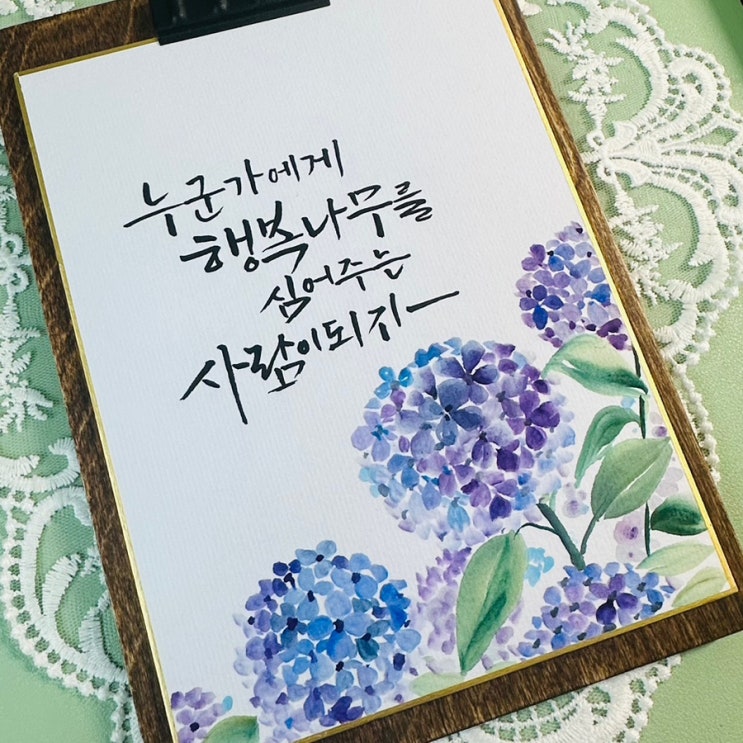 누군가에게
행복나무를
심어주는
사람이되자